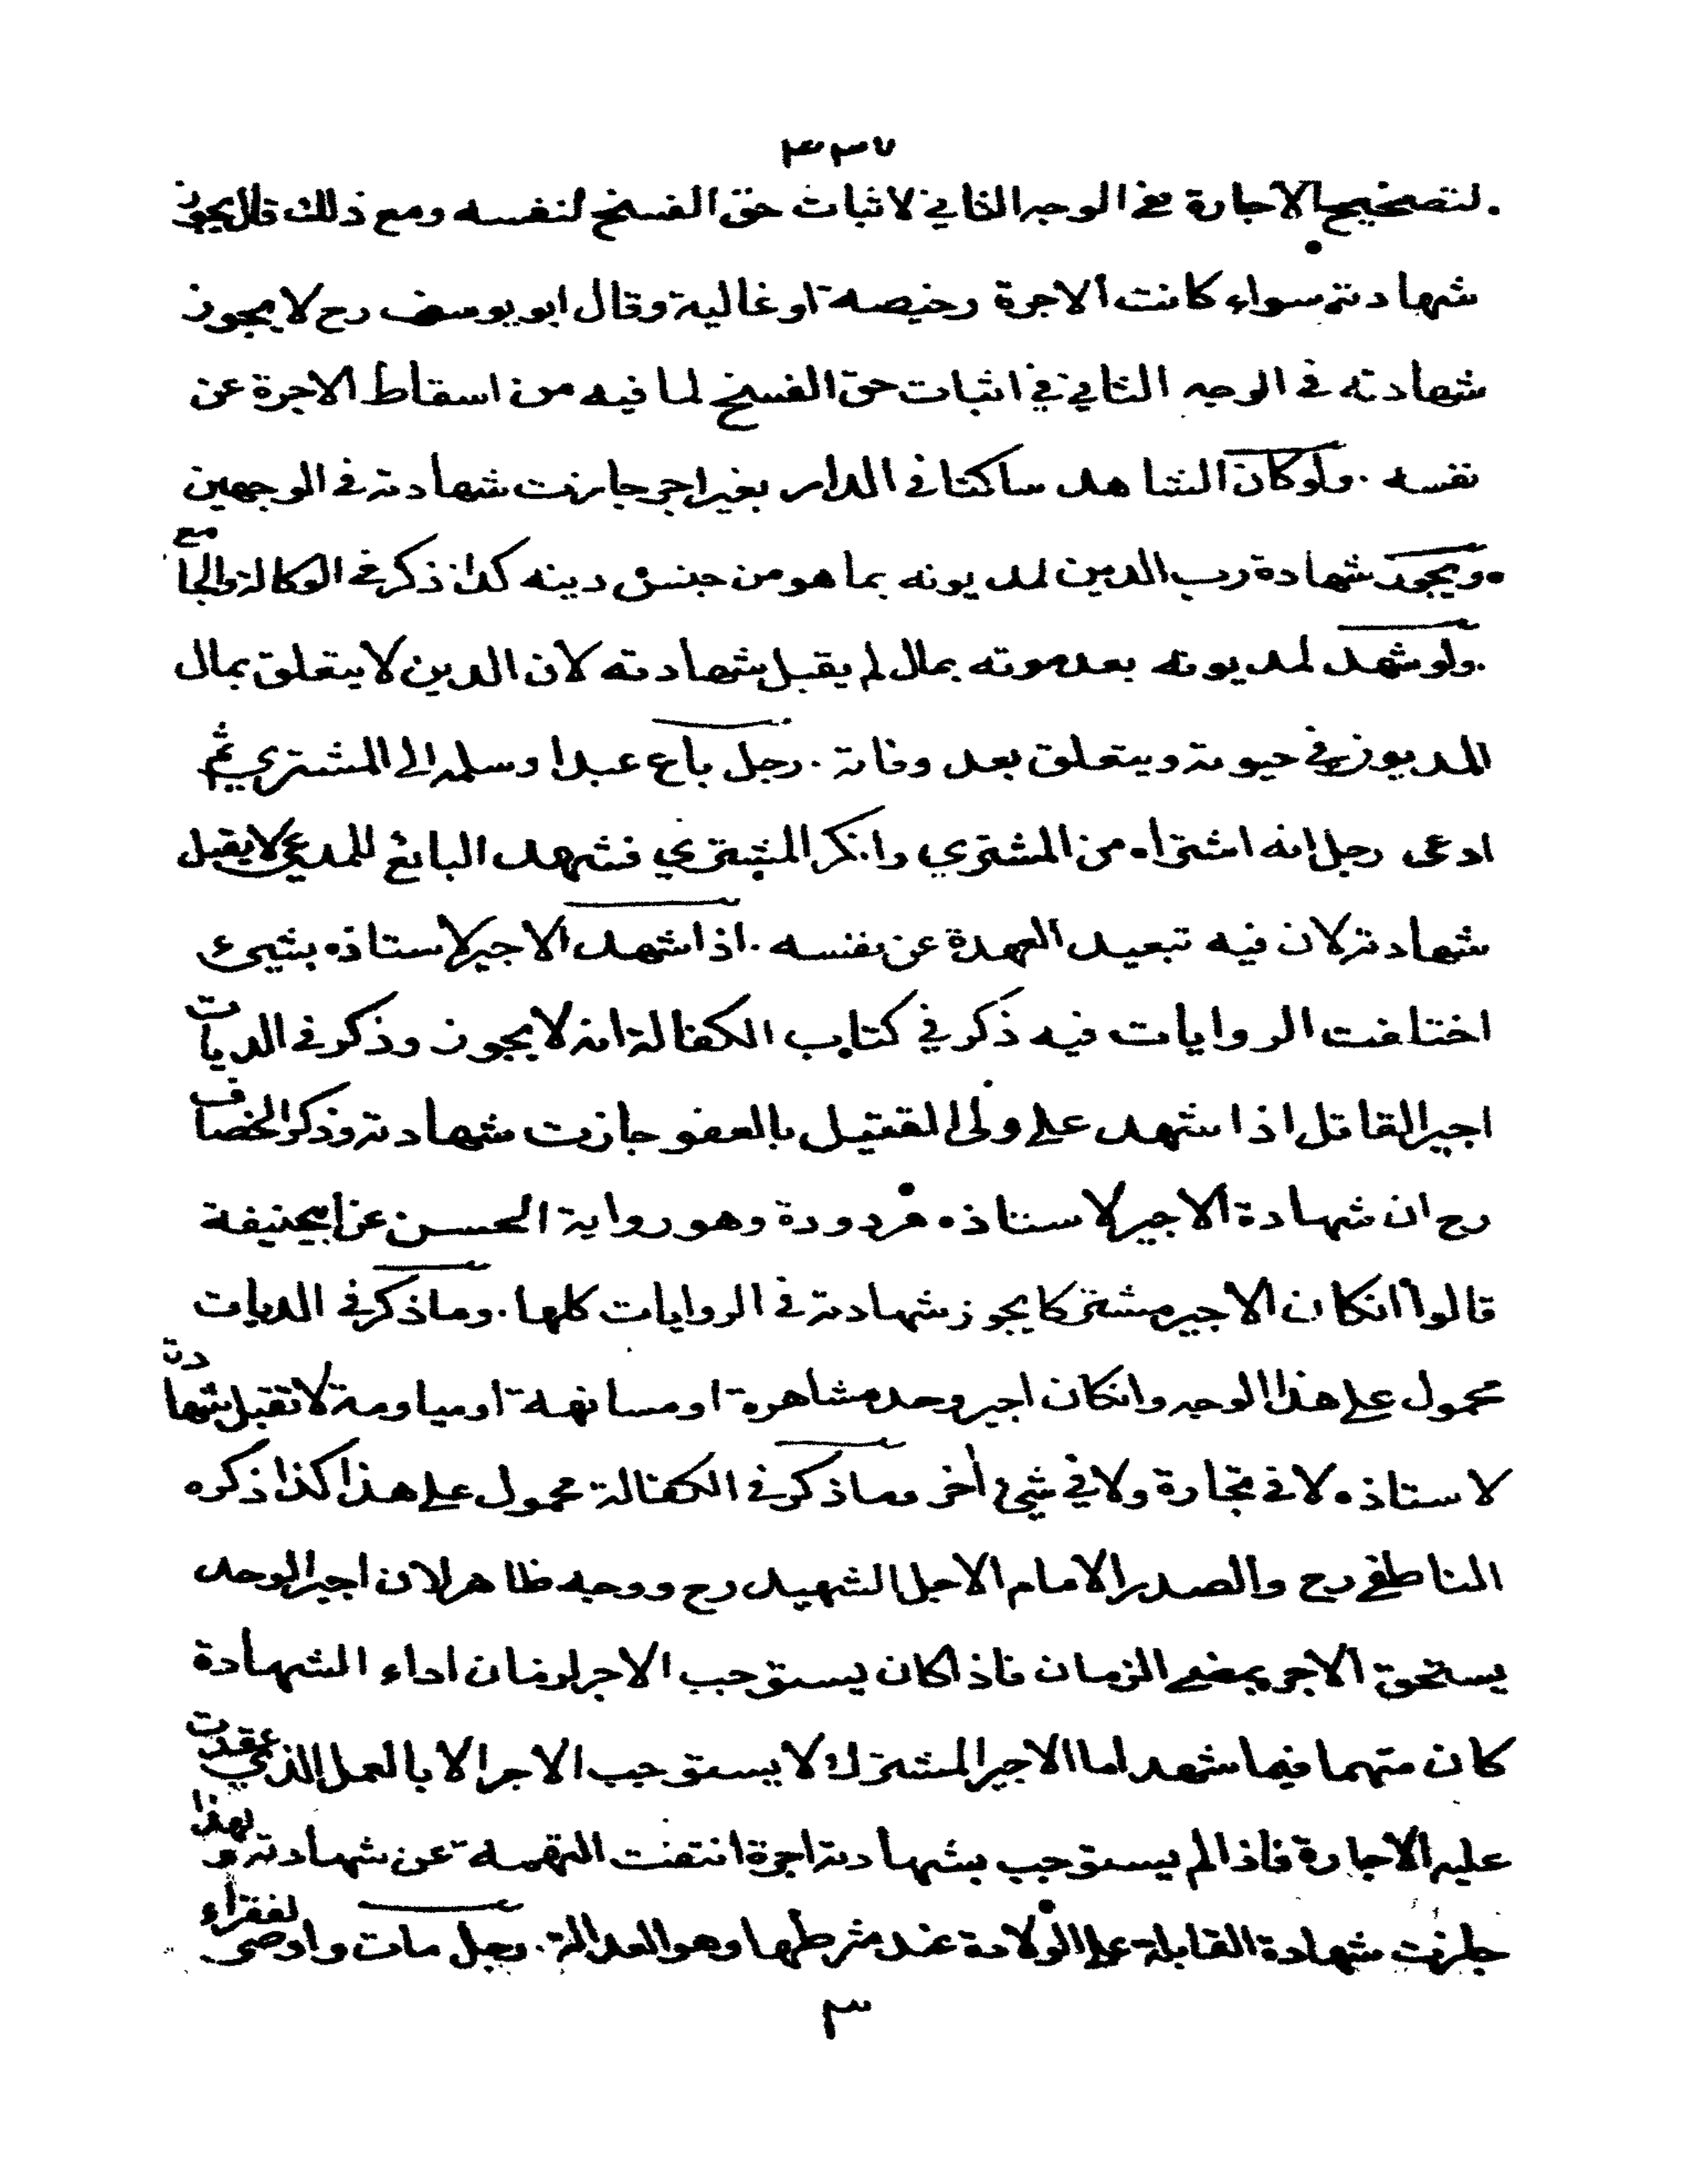 ٣٣٧
لتصحيح الاجارة في الوجه الثاني لاثبات حق الفسخ لنفسه ومع ذلك قال يجوز
شهادته سواء كانت الاجرة رخيصة او غالية وقال ابو يوسف رح لا يجوز
شهادته في الوجه الثاني في اثبات حق الفسخ لما فيه من اسقاط الاجرة عن
نفسه . ولو كان الشاهد ساكنا في الدار بغير اجر جازت شهادته في الوجهين
. ويجوز شهادة رب الدين لمديونه بما هو من جنس دينه كذا ذكر في الوكالة والجامع
. ولو شهد لمديونه بعد موته بمال لم يقبل شهادته لان الدين لا يتعلق بمال
المديون في حيوته ويتعلق بعد وفاته . رجل باع عبدا وسلمه الى المشتري ثم
ادعى رجل انه اشتراه من المشتري وانكر المشتري فشهد البائع للمدعي لا يقبل
شهادته لان فيه تبعيد العهدة عن نفسه . اذا شهد الاجير لاستاذه بشيئ
اختلفت الروايات فيه ذكر في كتاب الكفالة انه لا يجوز وذكر في الديات
اجير القاتل اذا شهد على ولى القتيل بالعفو جازت شهادته وذكر الخصاف
رح ان شهادة الاجير لاستاذه مردودة وهو رواية الحسن عن ابيحنيفة
قالوا انكان الاجير مشتركا يجوز شهادته في الروايات كلها . وما ذكر في الديات
محمول على هذا الوجه وانكان اجير وحد مشاهرة او مسانهة او مياومة لا تقبل شهادته
لاستاذه لا في تجارة ولا في شئ أخر وما ذكر في الكفالة محمول على هذا كذا ذكره
الناطفي رح والصدر الامام الاجل الشهيد رح ووجهه ظاهر لان اجير الوحد
يستحق الاجر بمضي الزمان فاذا كان يستوجب الاجر لزمان اداء الشهادة
كان متهما فيما شهد اما الاجير المشترك لا يستوجب الاجر الا بالعمل الذي عقدت
عليه الاجارة فاذا لم يستوجب بشهادته اجرة انتفت التهمة عن شهادته ولهذا
جازت شهادة القابلة على الولادة عند شرطها وهو العدالة . رجل مات واوصى لفقراء
٣